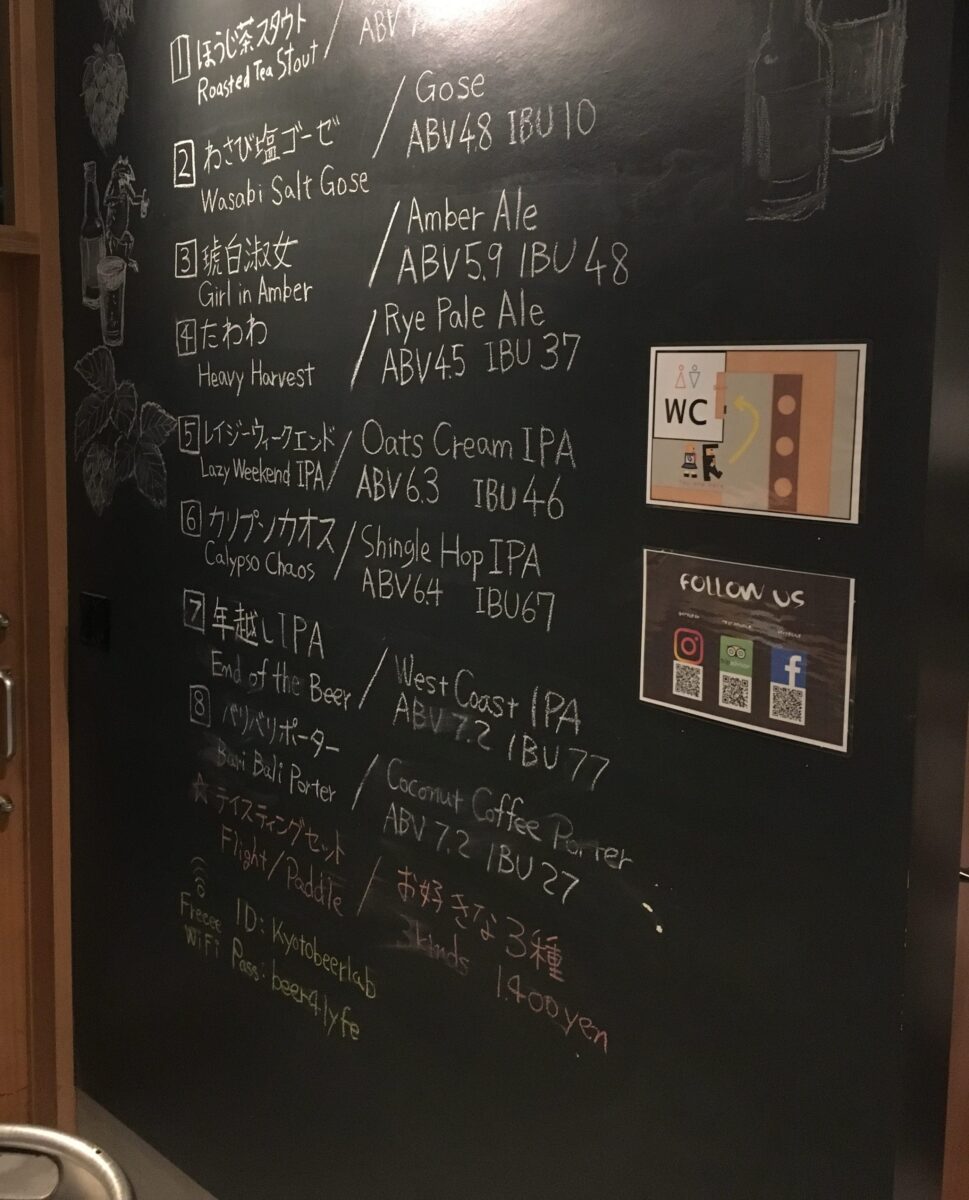 1 ほうじ茶スタウト / ABV
Roasted Tea Stout
2 わさび塩ゴーゼ / Gose
Wasabi Salt Gose ABV4.8 IBU10
3 琥白淑女 / Amber Ale
Girl in Amber ABV5.9 IBU48
4 たわわ / Rye Pale Ale
Heavy Harvest ABV4.5 IBU37
5 レイジーウィークエンド / Oats Cream IPA
Lazy Weekend IPA ABV6.3 IBU46
6 カリプソカオス / Shingle Hop IPA
Calypso Chaos ABV6.4 IBU67
7 年越しIPA / West Coast IPA
End of the Beer ABV7.2 IBU77
8 バリバリポーター / Coconut Coffee Porter
Bari Bali Porter ABV7.2 IBU27
☆テイスティングセット / お好きな3種
Flight/Paddle 3kinds 1.400yen
Freeee WiFi
ID: Kyotobeerlab
Pass: beer4lyfe
WC
FOLLOW US